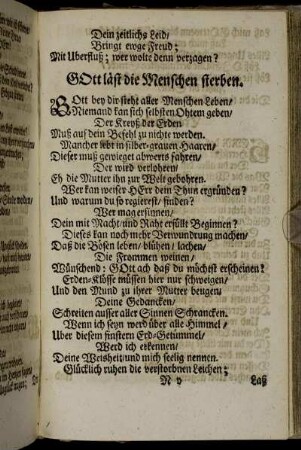 Dein zeitlichs Leid/
Bringt ewge Freud;
Mit Uberfluß; wer wolte denn verzagen?
GOtt läst die Menschen sterben.
GOtt bey dir steht aller Menschen Leben/
Niemand kan sich selbsten Ohtem geben/
Der Kreyß der Erden
Muß auf dein Befehl zu nichte werden.
Mancher lebt in silber-grauen Haaren/
Dieser muß gewieget abwerts fahren/
Der wird verlohren/
Eh die Mutter ihn zur Welt gebohren.
Wer kan weiser HErr dein Thun ergründen?
Und warum du so regierest/ finden?
Wer mag ersinnen/
Dein mit Macht/und Rahe erfüllt Beginnen?
Dieses kan noch mehr Verwundrung machen/
Daß die Bösen leben/ blühen/ lachen/
Die Frommen weinen/
Wünschend: GOtt ach daß du möchst erscheinen!
Erden-Klösse müssen hier nur schweigen/
Und den Mund zu ihrer Mutter beugen/
Deine Gedancken/
Schreiten ausser aller Sinnen Schrancken.
Wenn ich seyn werd über alle Himmel/
Uber diesem finstern Erd-Getümmel/
Werd ich erkennen/
Deine Weisheit/und mich seelig nennen.
Glücklich ruhen die verstorbnen Leichen;
N v Laß